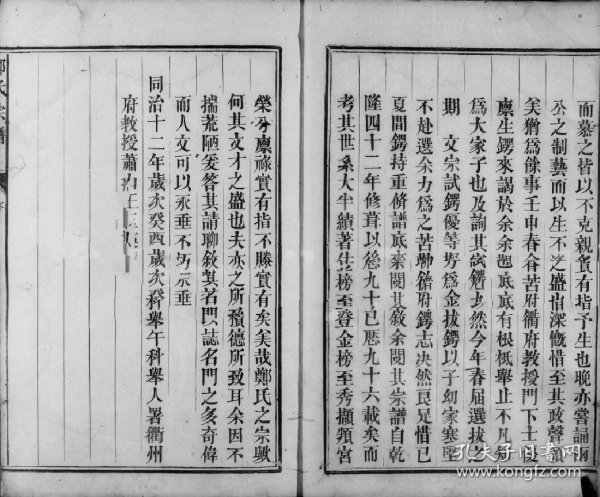 而慕之皆以不克親賢有指予生也晚亦嘗誦
公之制藝而以生不之盛宿深慨惜至其政聲
矣猶爲餘事壬申春畬苦府衢府教授門下士
廪生鍔來謁於余余底底有根柢舉止不凡
爲大家子也及詢其然今年春屆選拔之
期 文宗試鍔優等爲金拔鍔以子幼家寒堅
不赴選余力爲之苦勸府鍔志决然良足惜已
夏間鍔持重脩譜底來閱其敘余閱其宗譜自乾
隆四十二年修葺以後九十已歷九十六載矣而
考其世系大半續著榜至登金榜至秀擷頖宮
榮分廪祿實有指不勝實有矣美哉鄭氏之宗歟
何其文才之盛也夫亦之所積德所致耳余因不
揣荒陋爰答其請聊敘其若門以誌名門之多奇偉
而人文可以永垂不朽示垂
同治十二年歲次癸酉歲次科舉午科舉人署衢州
府教授蕭
氏宗譜
孔夫子旧书网
www.kongfz.com